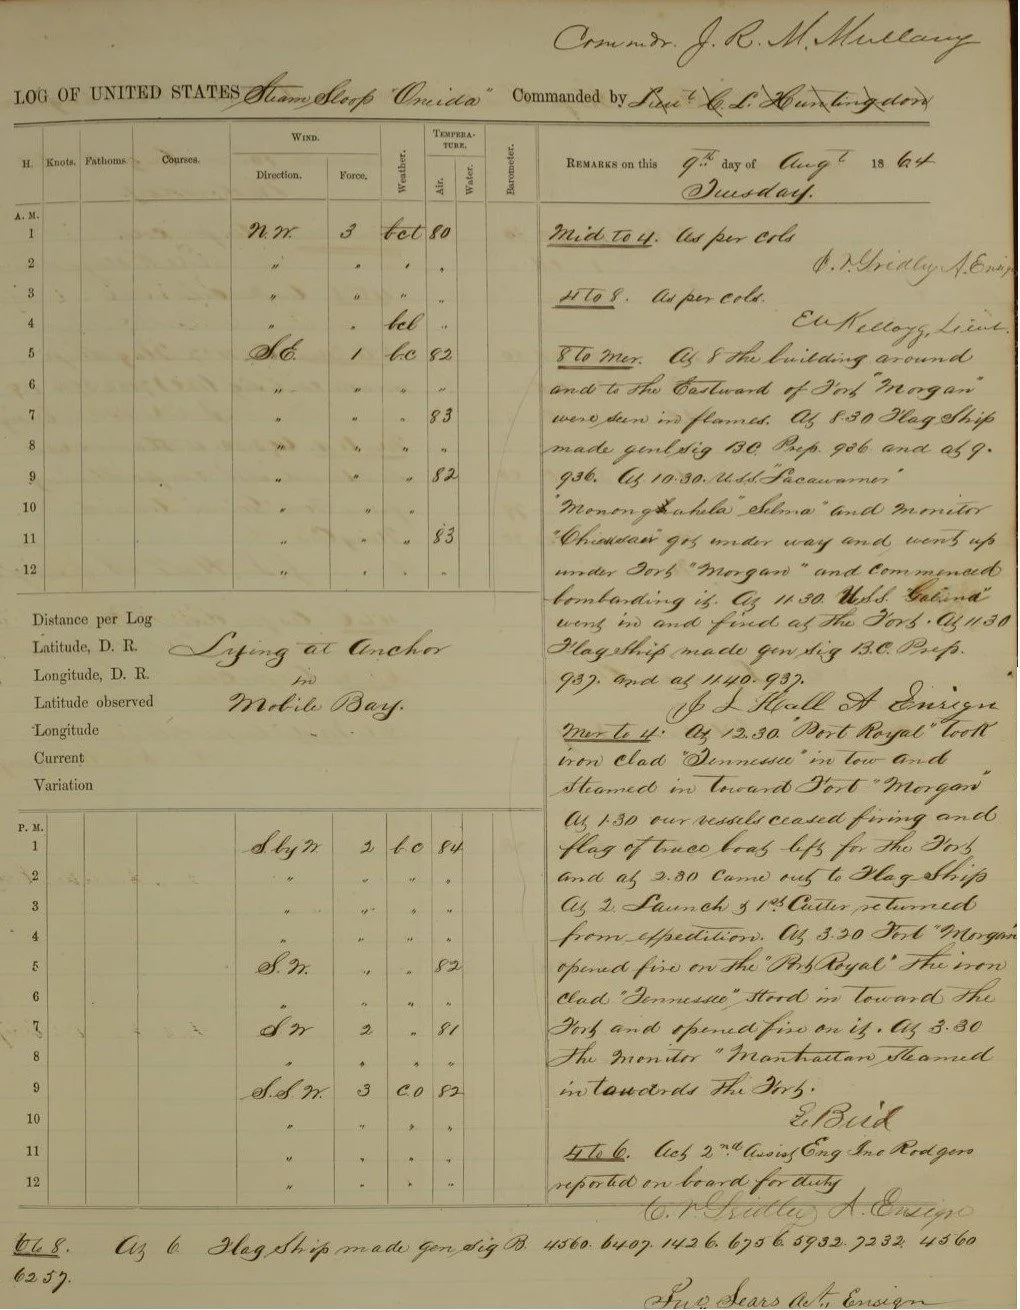 Commdr. J. R. M. Mullany
LOG OF UNITED STATES Steam Sloop "Oneida" Commanded by Lieut C. L. Huntingdon
H. Knots. Fathoms Courses. WIND. Direction. Force. Weather. TEMPERATURE. Air. Water. Barometer. REMARKS on this 9th day of Augt 1864
Tuesday.
A. M.
1 N.W. 3 bct 80
2 " " " "
3 " " " "
4 " " bcb "
5 S.E. 1 bc 82
6 " " " "
7 " " " 83
8 " " " "
9 " " " 82
10 " " "
11 " " " 83
12 " " " "
Distance per Log
Latitude, D. R.
Longitude, D. R.
Latitude observed
Longitude
Current
Variation
Lying at Anchor
in
Mobile Bay.
P. M.
1 S by W. 2 bc 84
2 " " " "
3 " " " "
4 " " " "
5 S.W. " " 82
6 " " " "
7 S W 2 " 81
8 " " " "
9 S.S.W. 3 c.o 82
10 " " " "
11 " " " "
12 " " " "
Mid to 4. As per cols
C. V. Gridley A. Ensign
4 to 8. As per cols.
Ed Kellogg, Lieut.
8 to Mer. At 8 the building around
and to the Eastward of Fort "Morgan"
were seen in flames. At 8.30 Flag Ship
made genl sig B.C. Prep. 936 and at 9.
936. At 10.30. U.S.S.
"Monongahela" "Selma" and monitor
got under way and went up
under Fort "Morgan" and commenced
bombarding it. At 11.30. U.S.S. "Galena"
went in and fired at the Fort. At 11.30
Flag Ship made gen sig B.C. Prep.
937. and at 11.40. 937.
J L Hall A Ensign
Mer to 4. At 12.30. "Port Royal" took
iron clad "Tennessee" in tow and
steamed in toward Fort "Morgan"
At 1.30 our vessels ceased firing and
flag of truce boat left for the Fort
and at 2.30 came out to Flag Ship
At 2. Launch & 1st Cutter returned
from expedition. At 3.20 Fort "Morgan
opened fire on the "Port Royal" the iron
clad "Tennessee", stood in toward the
Fort and opened fire on it. At 3.30
the monitor "Manhattan steamed
in towards the Fort.
E. Bird
4 to 6. Act 2nd Assist Eng Jno Rodgers
reported on board for duty
C. V. Gridley A. Ensign
6 to 8. At 6 Flag Ship made gen sig B. 4560. 6407. 1426. 6756. 5932. 7232. 4560
6257.
Jno. Sears Act. Ensign